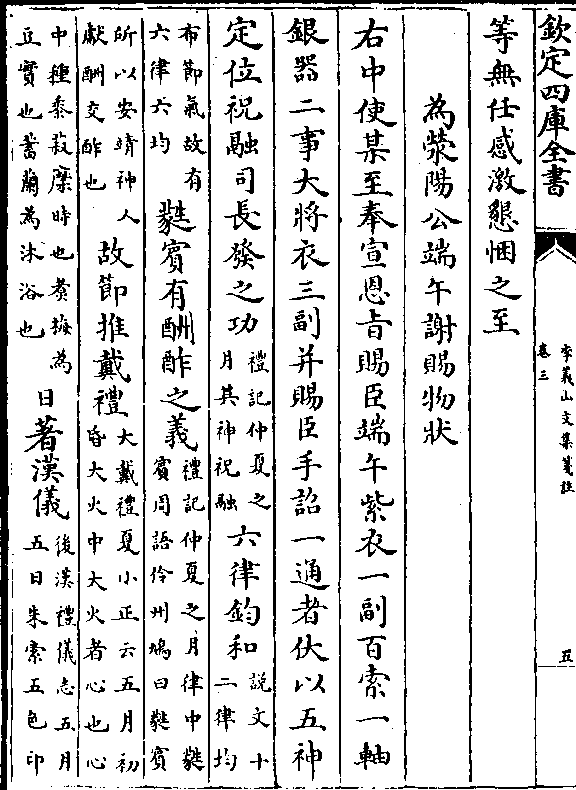 欽定四庫全書
李義山文集箋註
卷三
五
等無任感激懇悃之至
為滎陽公端午謝賜物狀
右中使某至奉宣恩旨賜臣端午紫衣一副百索一軸
銀器二事大將衣三副并賜臣手詔一通者伏以五神
定位祝融司長發之功禮記仲夏之月其神祝融六律鈞和說文十二律均
布節氣故有六律六均蕤賓有酬酢之義禮記仲夏之月律中蕤賓周語伶州鳩曰蕤賓
所以安靖神人獻酬交酢也故節推戴禮大戴禮夏小正云五月初昏大火中大火者心也心
中種黍菽糜時也煑梅為豆實也蓄蘭為沐浴也日著漢儀後漢禮儀志五月五日朱索五色印